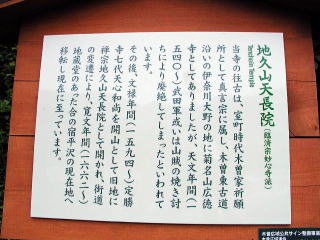 地久山天長院(臨済宗妙心寺派)
当寺の往古は、室町時代木曽家祈願
所として真言宗に属し、木曽東古道
沿いの伊奈川大野の地に菊名山広徳
寺としてありましたが、天文年間(一
五四〇〜)武田軍或いは山賊の焼き討
ちにより廃絶してしまったといわれて
います。
その後、文禄年間(一五九四〜)定勝
寺七代天心和尚を開山として旧地に
禅宗地久山天長院として開かれ、街道
の変遷により、寛文年間(一六六二〜)
地蔵堂のあった合の宿平沢の現在地へ
移転し現在に至っています。
木曽広域公共サイン整備事業